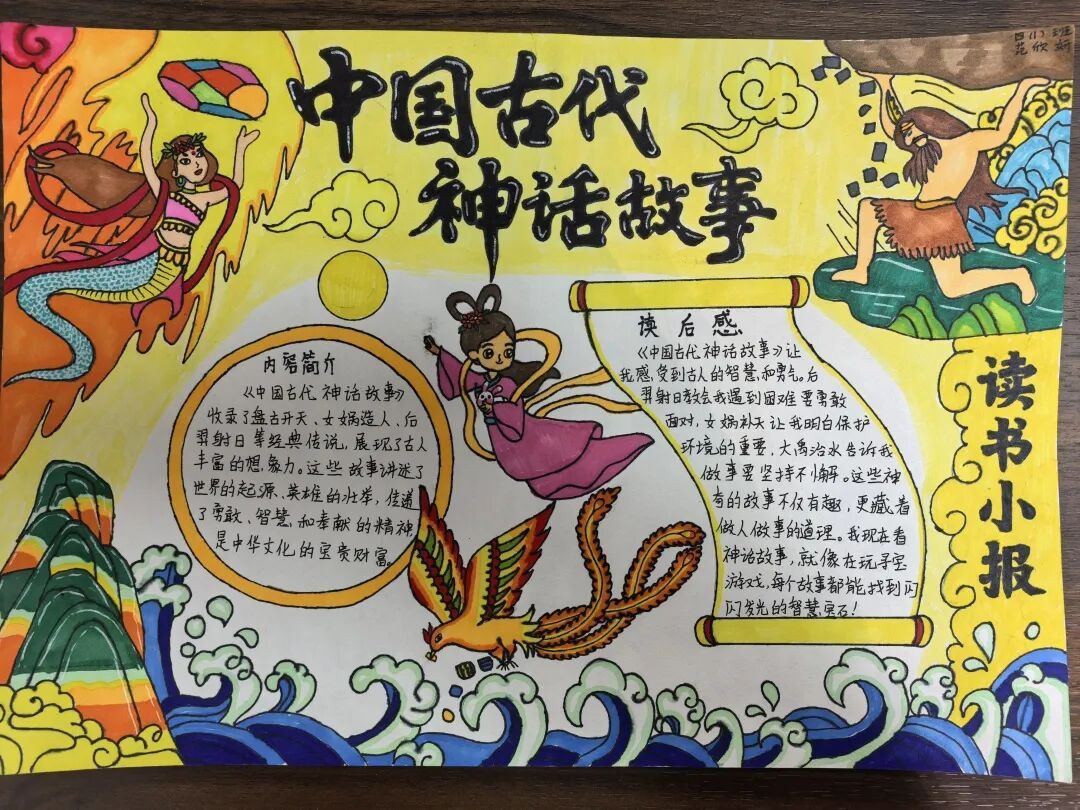 中国古代
神话故事
内容简介
《中国古代神话故事》
收录了盘古开天、女娲造人、后
羿射日等经典传说,展现了古人
丰富的想象力。这些故事讲述了
世界的起源、英雄的壮举,传递
了勇敢、智慧和奉献的精神,
是中华文化的宝贵财富。
读后感
《中国古代神话故事》让
我感受到古人的智慧和勇气。后
羿射日教会我遇到困难要勇敢
面对,女娲补天让我明白保护
环境的重要,大禹治水告诉我
做事要坚持不懈。这些神
奇的故事不仅有趣,更藏着
做人做事的道理。我现在看
神话故事,就像在玩寻宝
游戏,每个故事都能找到闪
闪发光的智慧宝石!
读书小报